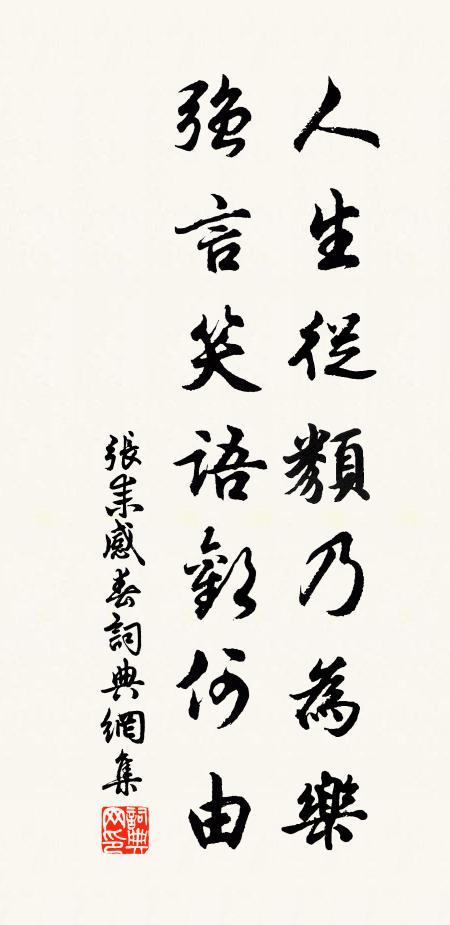 人生從類乃為樂
强言笑語歡何由
張耒感春詞典網集
詞典网印